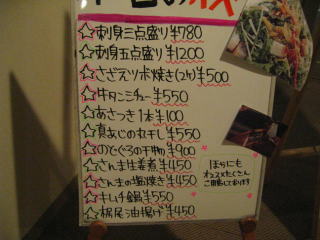 本日のオススメ
☆刺身三点盛り ¥780
☆刺身五点盛り ¥1200
☆さざえツボ焼き(2ケ) ¥500
☆牛タンシチュー ¥550
☆あさつき1本 ¥100
☆真あじの丸干し ¥550
☆のどぐろの干物 ¥900
☆さんま生姜煮 ¥450
☆さんまの塩焼き ¥450
☆キムチ鍋 ¥550
☆栃尾油揚げ ¥450
ほかにも
オススメたくさん
ご用意しております